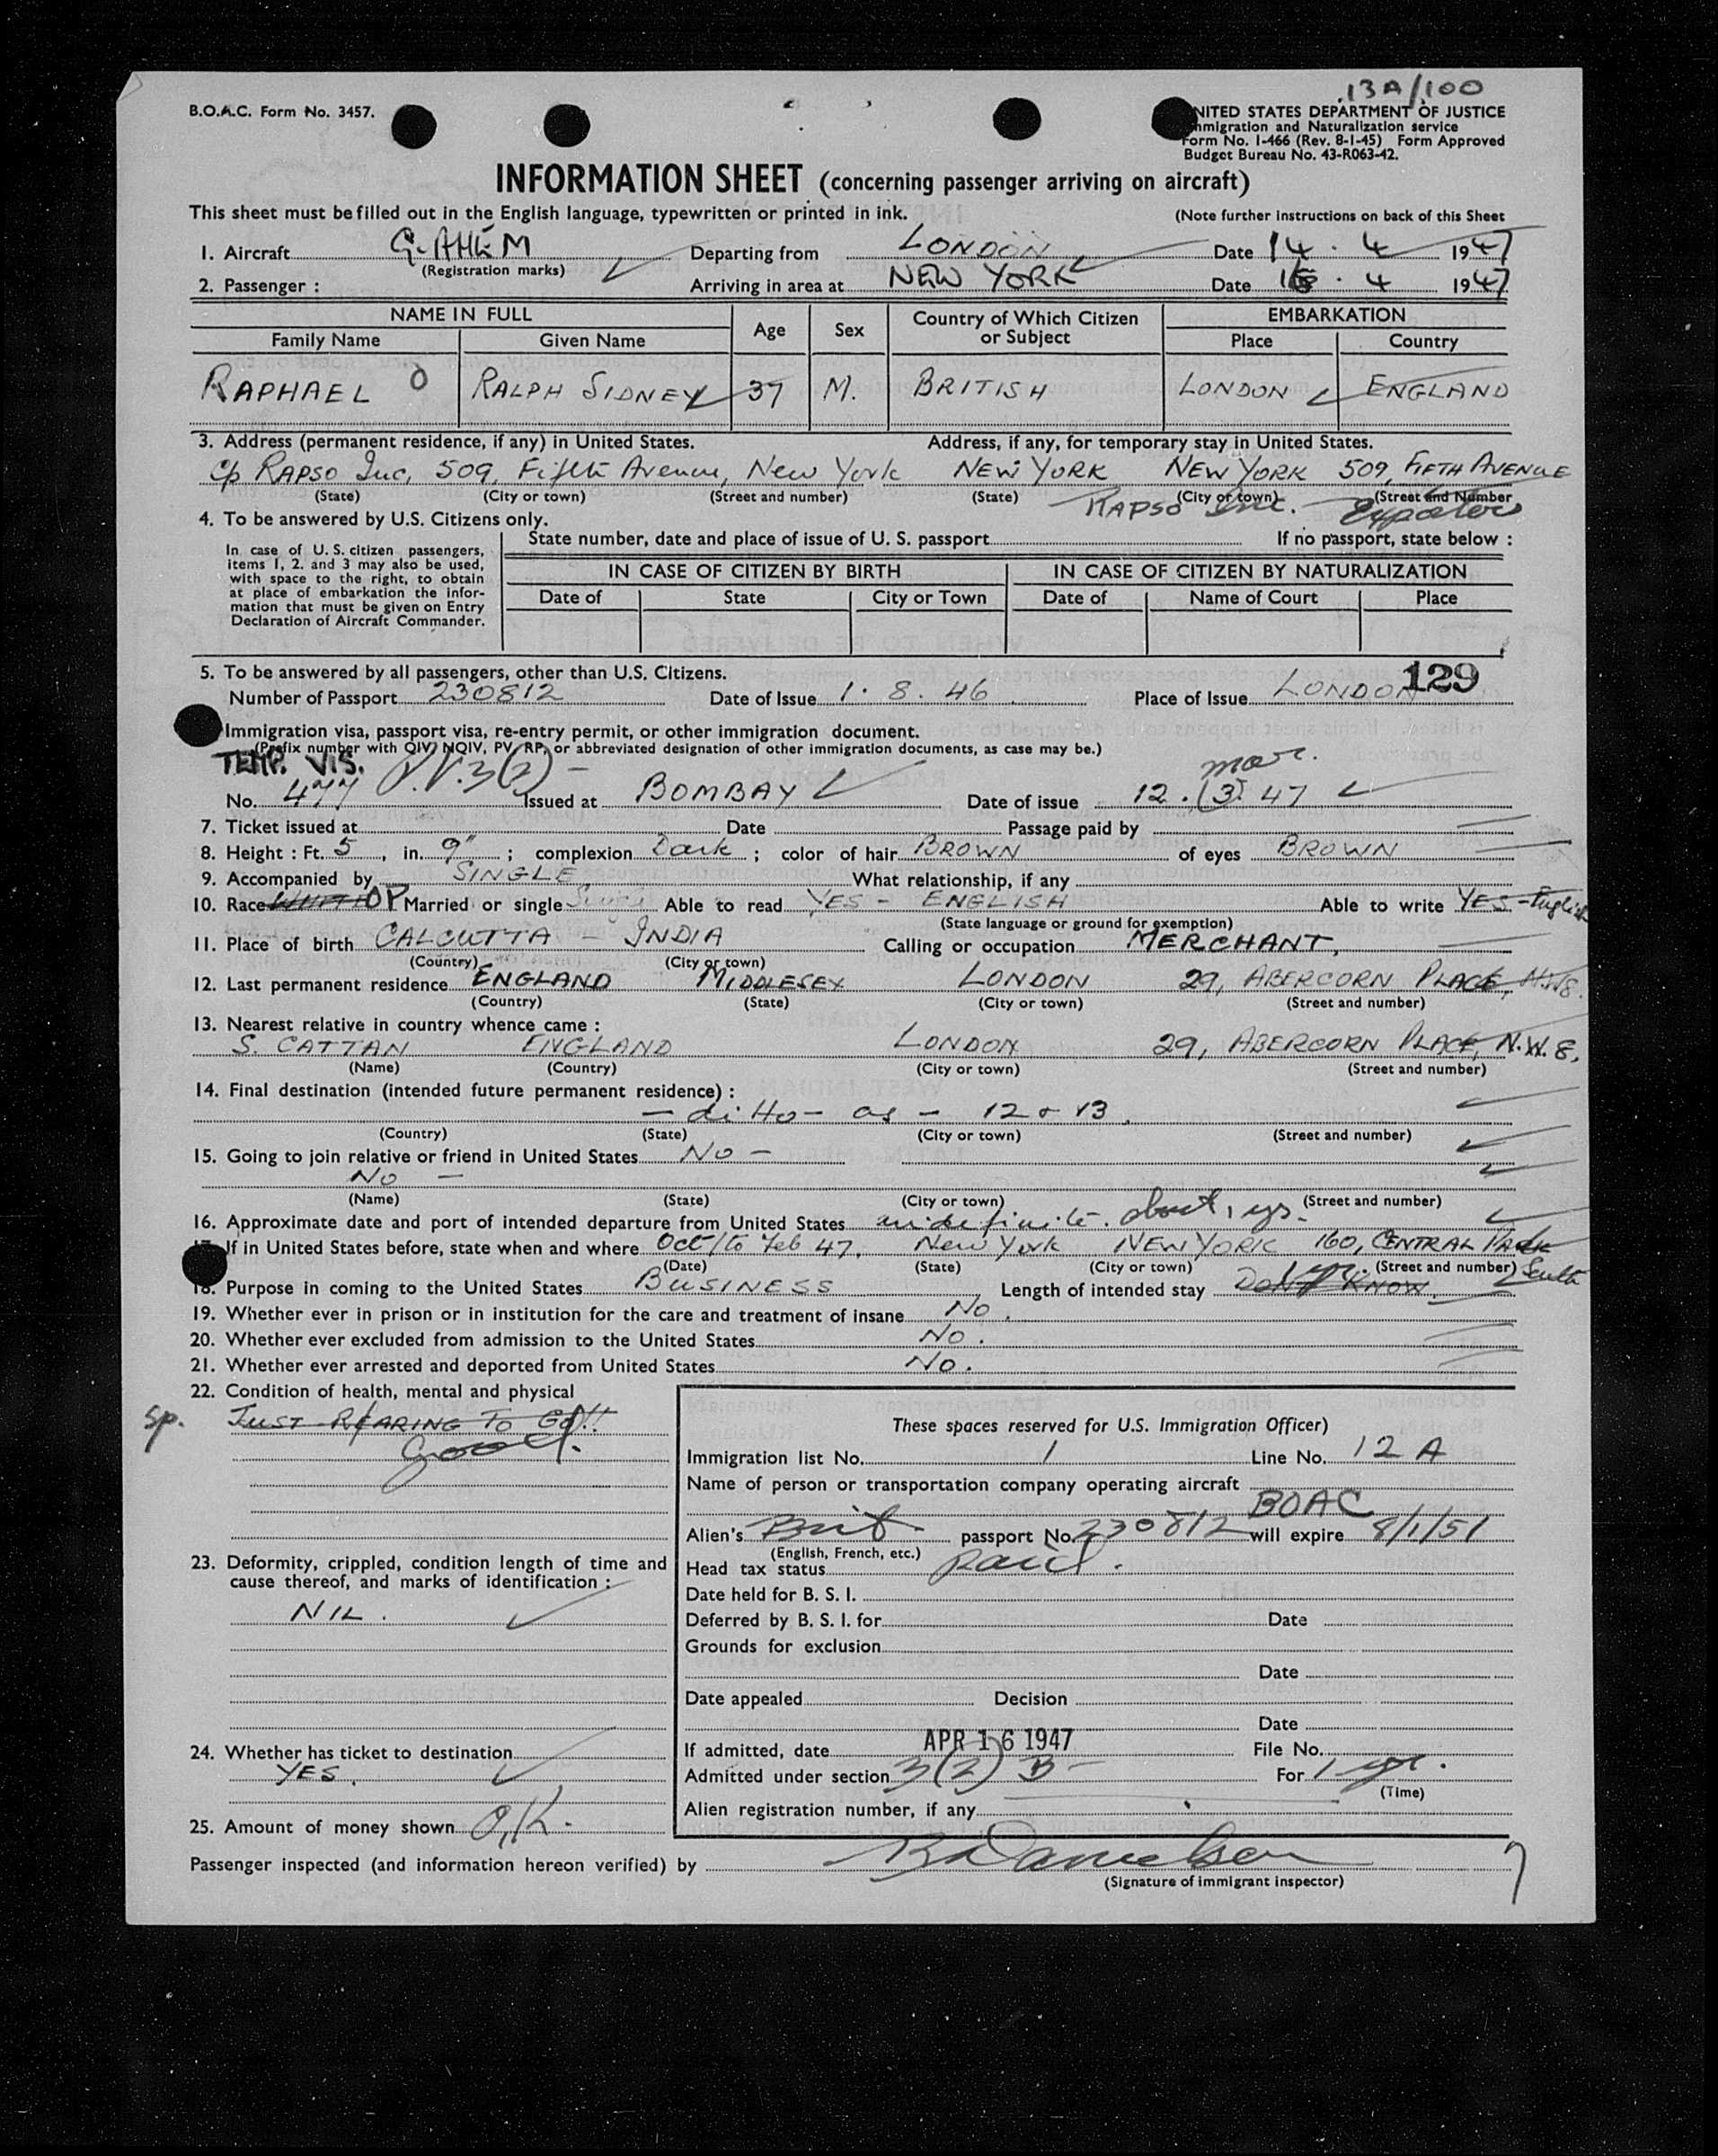 13A/100
B.O.A.C. Form No. 3457.
NITED STATES DEPARTMENT OF JUSTICE
mmigration and Naturalization service
Form No. I-466 (Rev. 8-1-45) Form Approved
Budget Bureau No. 43-R063-42.
INFORMATION SHEET (concerning passenger arriving on aircraft)
This sheet must be filled out in the English language, typewritten or printed in ink. (Note further instructions on back of this Sheet
1. Aircraft G. AHEM Departing from LONDON Date 14 . 4 1947
(Registration marks)
2. Passenger : Arriving in area at NEW YORK Date 16 . 4 1947
NAME IN FULL Age Sex Country of Which Citizen or Subject EMBARKATION
Family Name Given Name Place Country
RAPHAEL RALPH SIDNEY 37 M. BRITISH LONDON ENGLAND
3. Address (permanent residence, if any) in United States. Address, if any, for temporary stay in United States.
c/o RAPSO Inc, 509, Fifth Avenue, New York NEW YORK NEW YORK 509, FIFTH AVENUE
(State) (City or town) (Street and number) (State) (City or town) (Street and Number
RAPSO Inc.
4. To be answered by U.S. Citizens only.
State number, date and place of issue of U. S. passport If no passport, state below :
In case of U. S. citizen passengers,
items 1, 2. and 3 may also be used,
with space to the right, to obtain
at place of embarkation the infor-
mation that must be given on Entry
Declaration of Aircraft Commander.
IN CASE OF CITIZEN BY BIRTH IN CASE OF CITIZEN BY NATURALIZATION
Date of State City or Town Date of Name of Court Place
5. To be answered by all passengers, other than U.S. Citizens. 129
Number of Passport 230812 Date of Issue 1. 8. 46 Place of Issue LONDON
Immigration visa, passport visa, re-entry permit, or other immigration document.
(Prefix number with QIV, NQIV, PV, RP, or abbreviated designation of other immigration documents, as case may be.)
TEMP. VIS. P.V. 3(2) - mar.
No. 477 Issued at BOMBAY Date of issue 12. (3). 47
7. Ticket issued at Date Passage paid by
8. Height : Ft. 5 , in. 9" ; complexion Dark ; color of hair BROWN of eyes BROWN
9. Accompanied by SINGLE What relationship, if any
10. Race WHITE Married or single Single Able to read YES - ENGLISH Able to write YES - English
(State language or ground for exemption)
11. Place of birth CALCUTTA - INDIA Calling or occupation MERCHANT,
(Country) (City or town)
12. Last permanent residence ENGLAND MIDDLESEX LONDON 29, ABERCORN PLACE, N.W8.
(Country) (State) (City or town) (Street and number)
13. Nearest relative in country whence came :
S. CATTAN ENGLAND LONDON 29, ABERCORN PLACE, N.W. 8,
(Name) (Country) (City or town) (Street and number)
14. Final destination (intended future permanent residence) :
- ditto - as - 12 & 13.
(Country) (State) (City or town) (Street and number)
15. Going to join relative or friend in United States No -
No -
(Name) (State) (City or town) (Street and number)
16. Approximate date and port of intended departure from United States indefinite. about 1 yr.
If in United States before, state when and where Oct/to Feb 47. New York NEW YORK 160, CENTRAL PARK South
(Date) (State) (City or town) (Street and number)
18. Purpose in coming to the United States BUSINESS Length of intended stay DON'T KNOW. 1 yr.
19. Whether ever in prison or in institution for the care and treatment of insane No.
20. Whether ever excluded from admission to the United States No.
21. Whether ever arrested and deported from United States No.
22. Condition of health, mental and physical
sp. JUST REARING TO GO!!
good.
These spaces reserved for U.S. Immigration Officer)
Immigration list No. 1 Line No. 12 A
Name of person or transportation company operating aircraft
BOAC
Alien's Brit passport No. 230812 will expire 8/1/51
(English, French, etc.)
Head tax status Paid.
Date held for B. S. I.
Deferred by B. S. I. for Date
Grounds for exclusion
Date
Date appealed Decision
Date
If admitted, date APR 16 1947 File No.
Admitted under section 3(2) B - For 1 yr.
(Time)
Alien registration number, if any
23. Deformity, crippled, condition length of time and
cause thereof, and marks of identification :
NIL.
24. Whether has ticket to destination
YES.
25. Amount of money shown O.K.
Passenger inspected (and information hereon verified) by
(Signature of immigrant inspector)